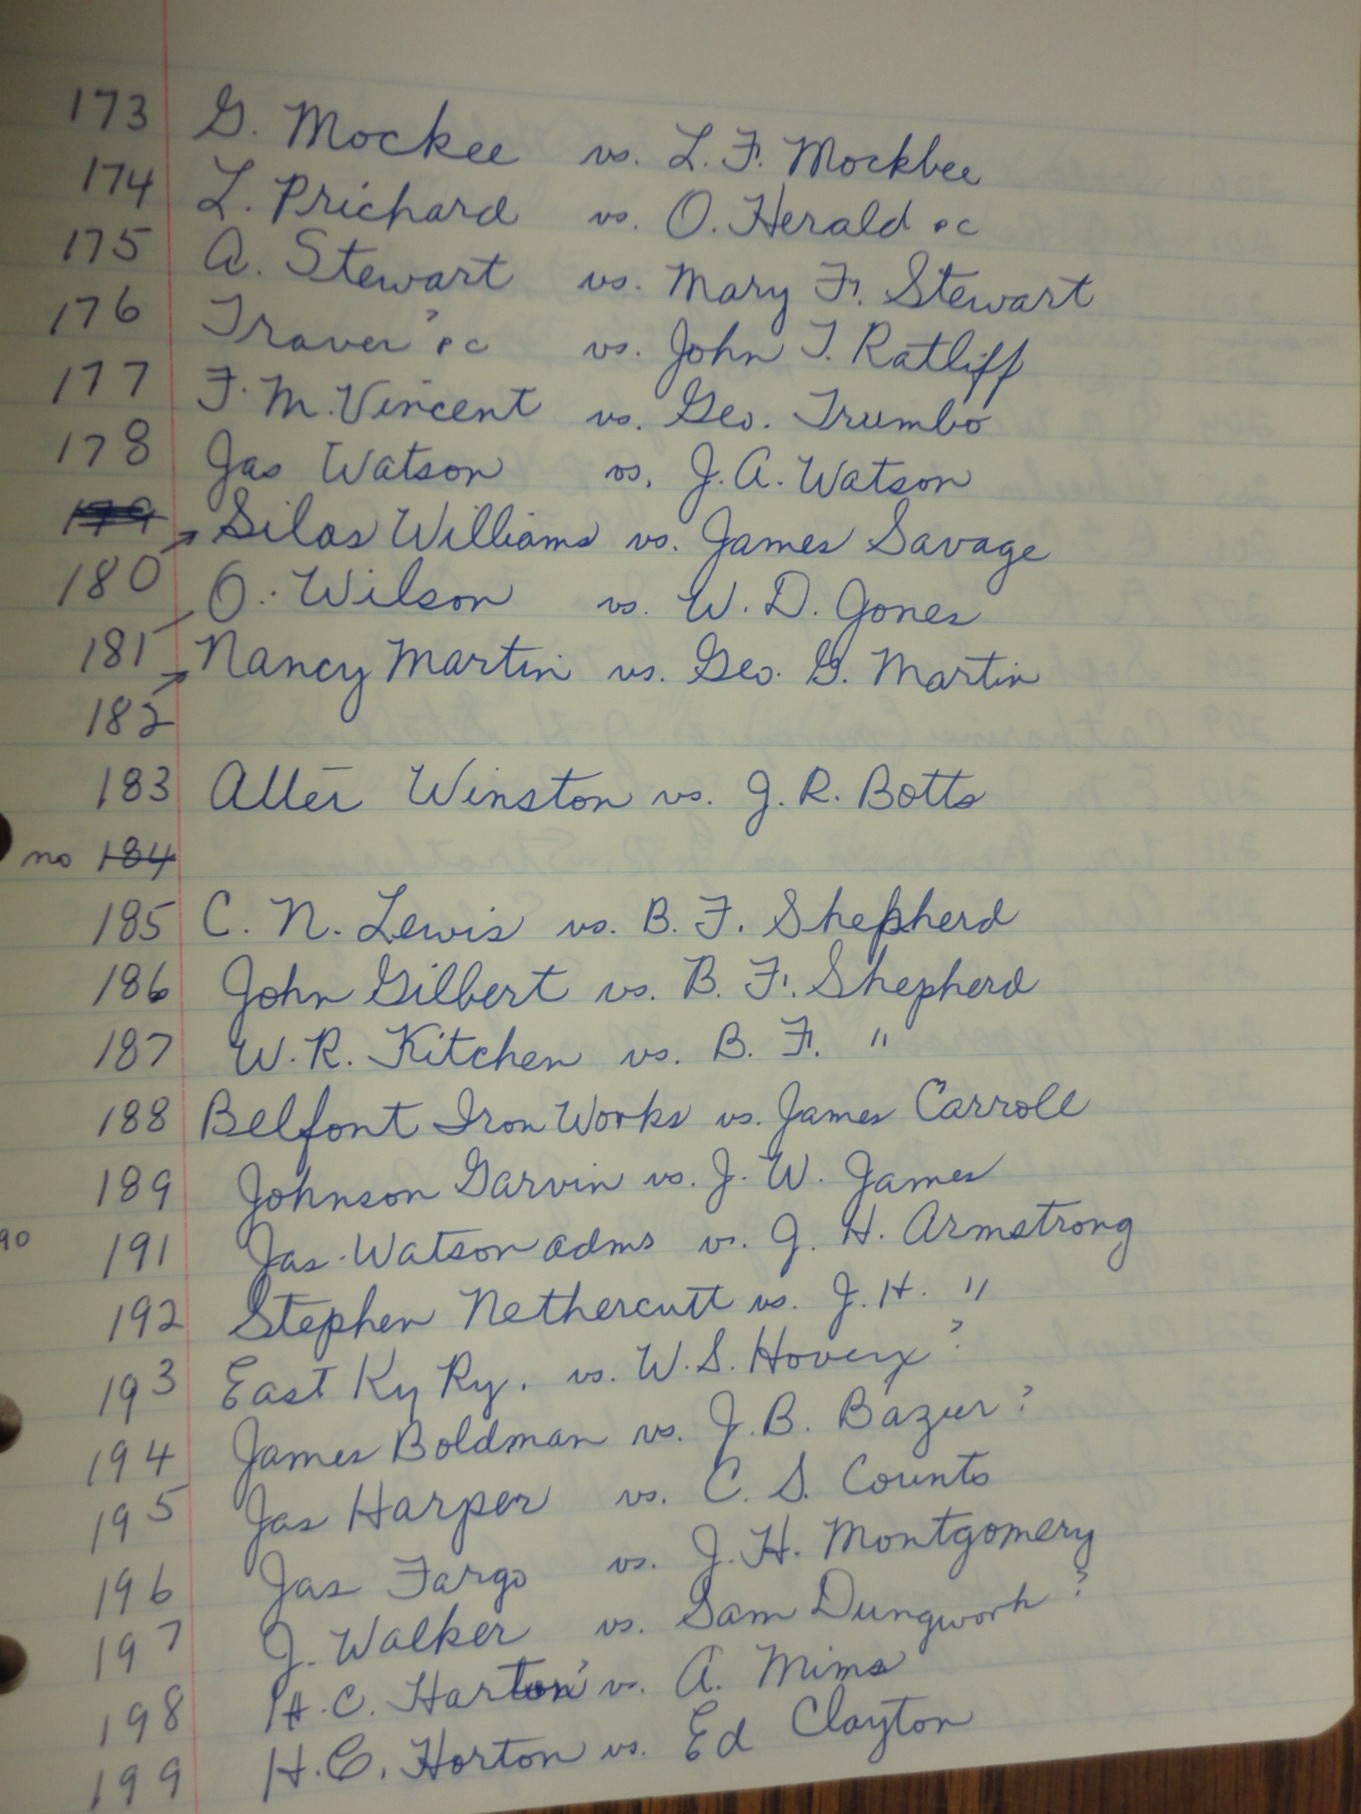 173 G. Mockee vs. L. F. Mockbee
174 L. Prichard vs. O. Herald &c
175 A. Stewart vs. Mary F. Stewart
176 Traver? &c vs. John T. Ratliff
177 F. M. Vincent vs. Geo. Trumbo
178 Jas Watson vs. J. A. Watson
179 Silas Williams vs. James Savage
180 O. Wilson vs. W. D. Jones
181 Nancy Martin vs. Geo. G. Martin
182
183 Winston vs. J. R. Botts
no 184
185 C. N. Lewis vs. B. F. Shepherd
186 John Gilbert vs. B. F. Shepherd
187 W. R. Kitchen vs. B. F. "
188 Belfont Iron Works vs. James Carroll
189 Johnson Garvin vs. J. W. James
90 191 Jas. Watson adms vs. J. H. Armstrong
192 Stephen Nethercutt vs. J. H. "
193 East Ky Ry. vs. W. S. ?
194 James Boldman vs. J. B. Bazur?
195 Jas Harper vs. C. S. Counts
196 Jas Fargo vs. J. H. Montgomery
197 J. Walker vs. Sam Dungworh?
198 H. C. Harton? vs. A. Mims
199 H. C. Horton vs. Ed Clayton